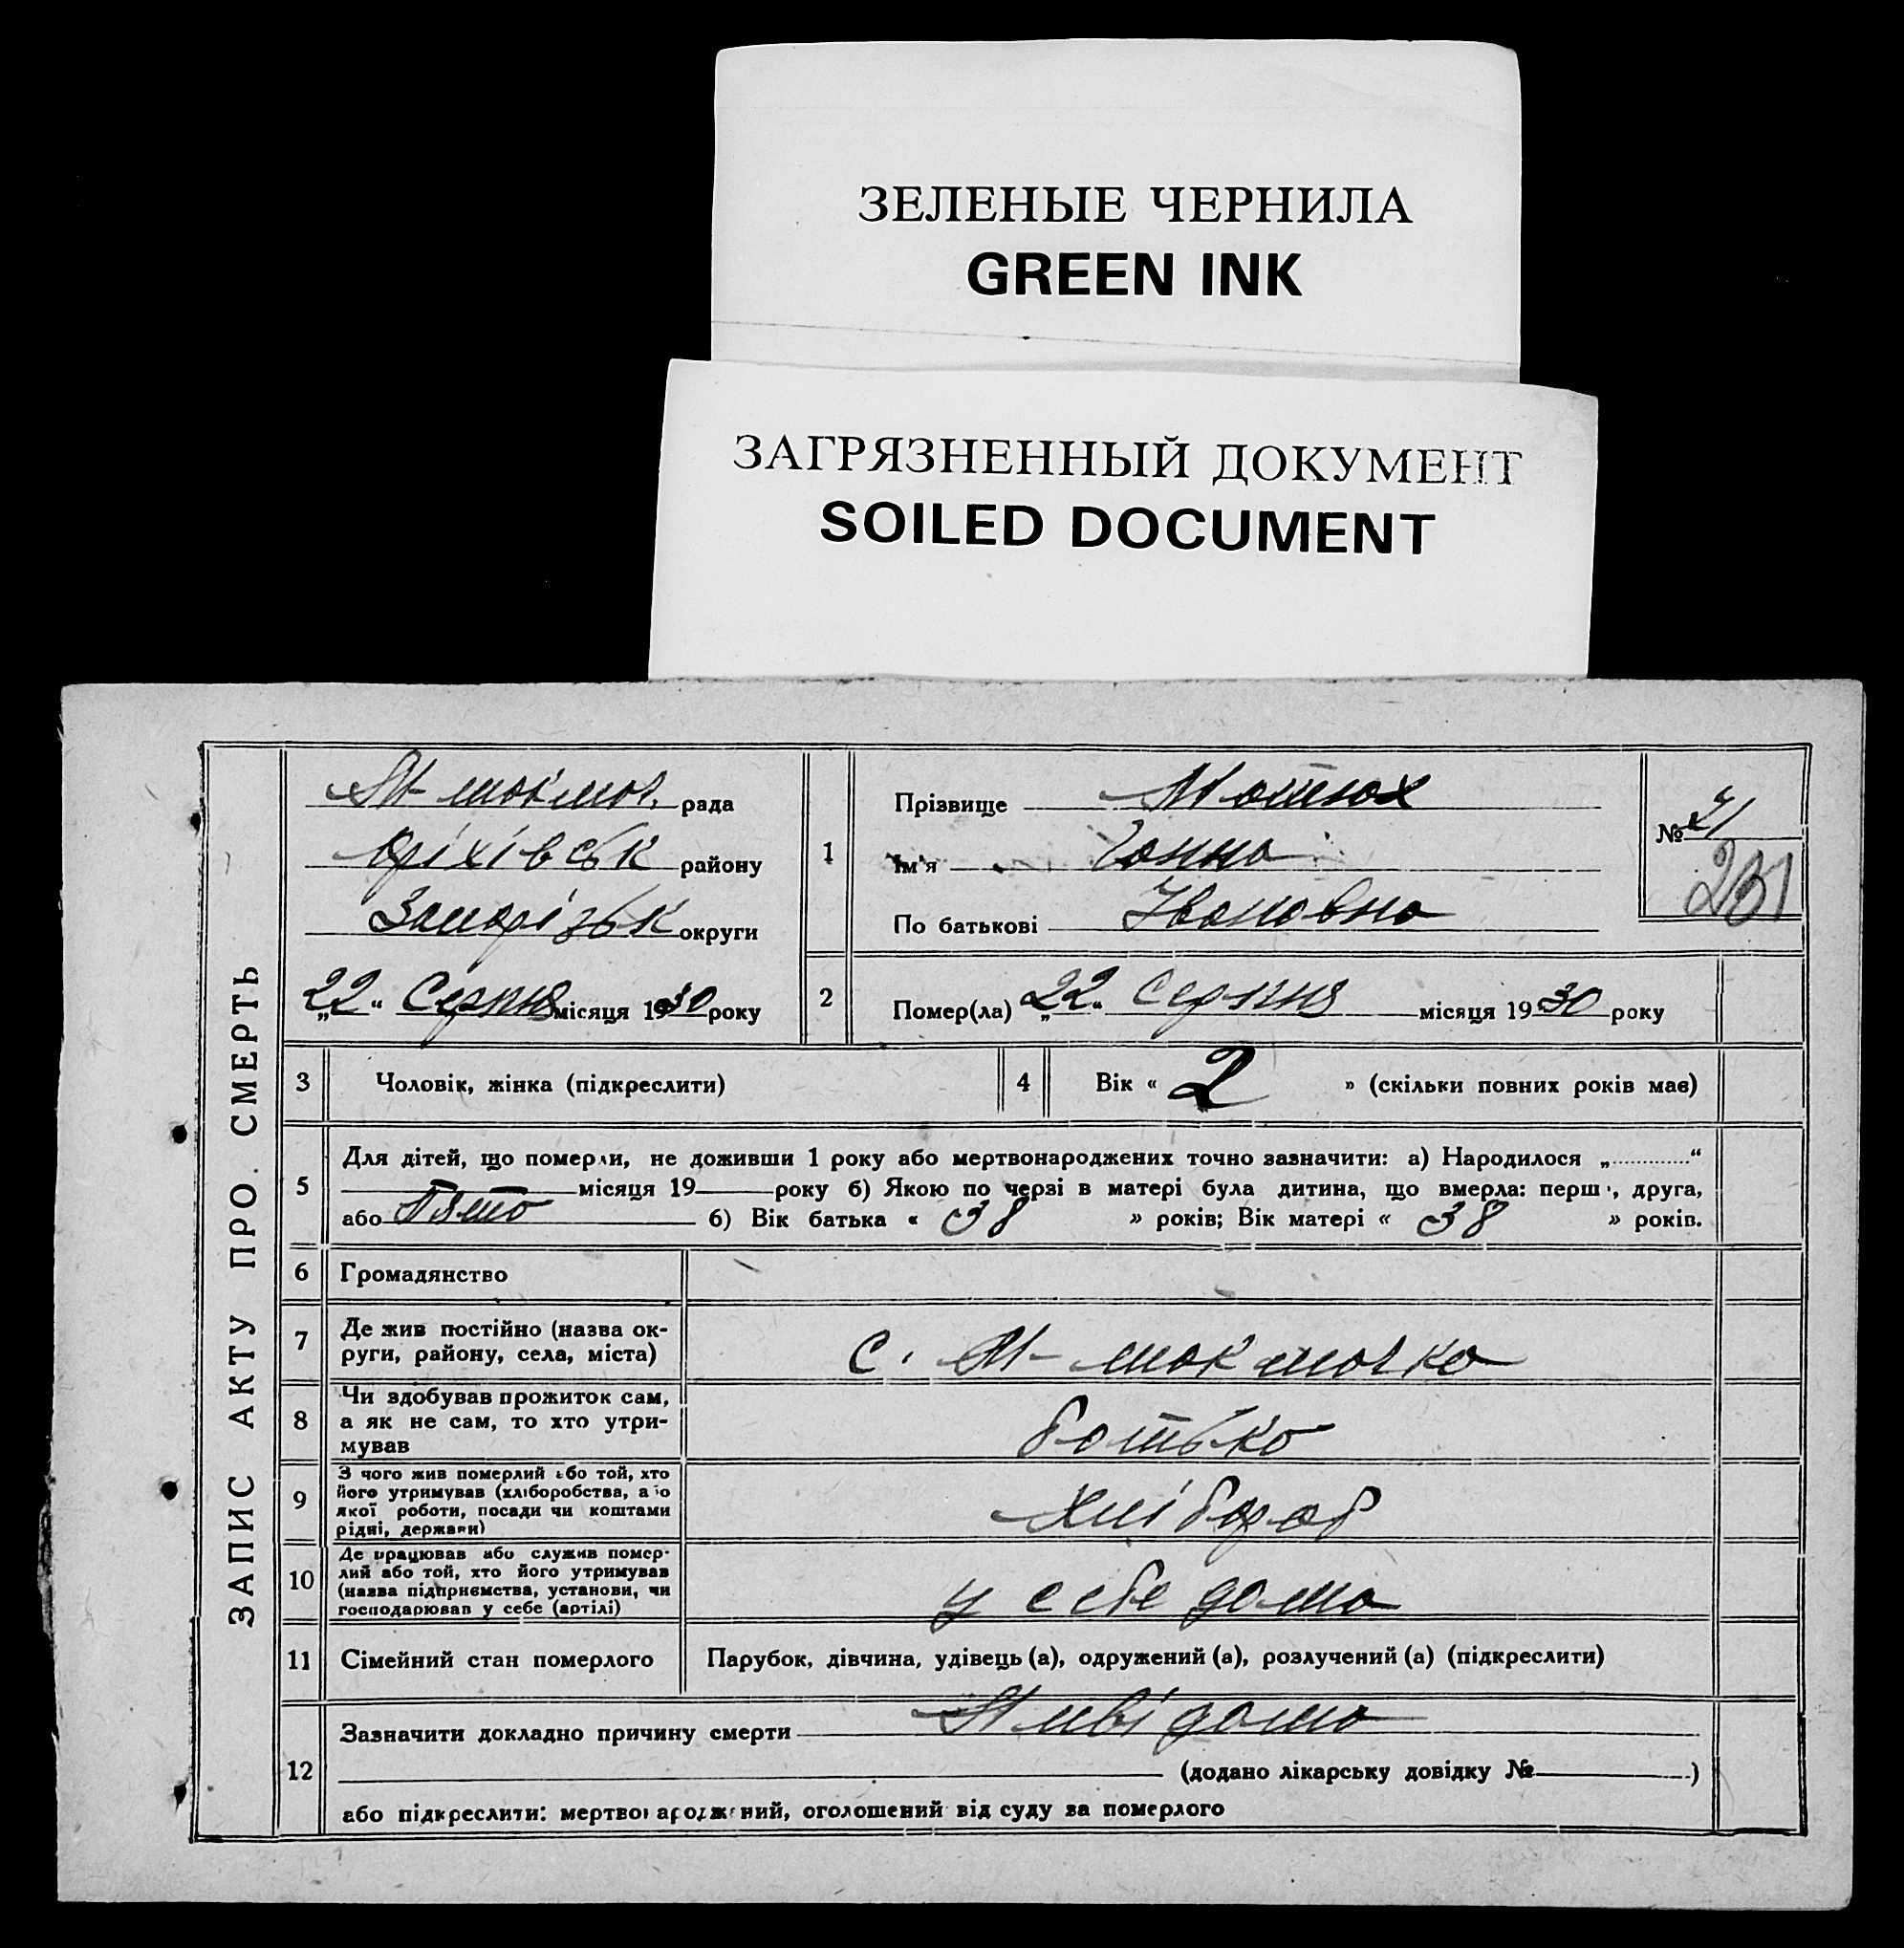 ЗЕЛЕНЫЕ ЧЕРНИЛА
GREEN INK
ЗАГРЯЗНЕННЫЙ ДОКУМЕНТ
SOILED DOCUMENT
ЗАПИС АКТУ ПРО СМЕРТЬ
М-токмач. рада
Оріхівськ району
Запорізьк округи
„22“ Серпня місяця 1930 року
1
Прізвище Мотюх
Ім'я Ганна
По батькові Івановна
№ 21
231
2
Помер(ла) „22“ Серпня місяця 1930 року
3 Чоловік, жінка (підкреслити)
4 Вік « 2 » (скільки повних років має)
5
Для дітей, що померли, не доживши 1 року або мертвонароджених точно зазначити: а) Народилося „ “
місяця 19 року б) Якою по черзі в матері була дитина, що вмерла: перша, друга,
або Пята б) Вік батька « 38 » років; Вік матері « 38 » років.
6 Громадянство
7
Де жив постійно (назва ок-
руги, району, села, міста)
с. М-токмачка
8
Чи здобував прожиток сам,
а як не сам, то хто утри-
мував
батько
9
З чого жив померлий або той, хто
його утримував (хліборобства, або
якої роботи, посади чи коштами
рідні, держави)
Хлібороб
10
Де працював або служив помер-
лий або той, хто його утримував
(назва підприємства, установи, чи
господарював у себе (артілі)
у себе дома
11 Сімейний стан померлого
Парубок, дівчина, удівець (а), одружений (а), розлучений (а) (підкреслити)
12
Зазначити докладно причину смерти
(додано лікарську довідку № )
або підкреслити: мертвонароджений, оголошений від суду за померлого